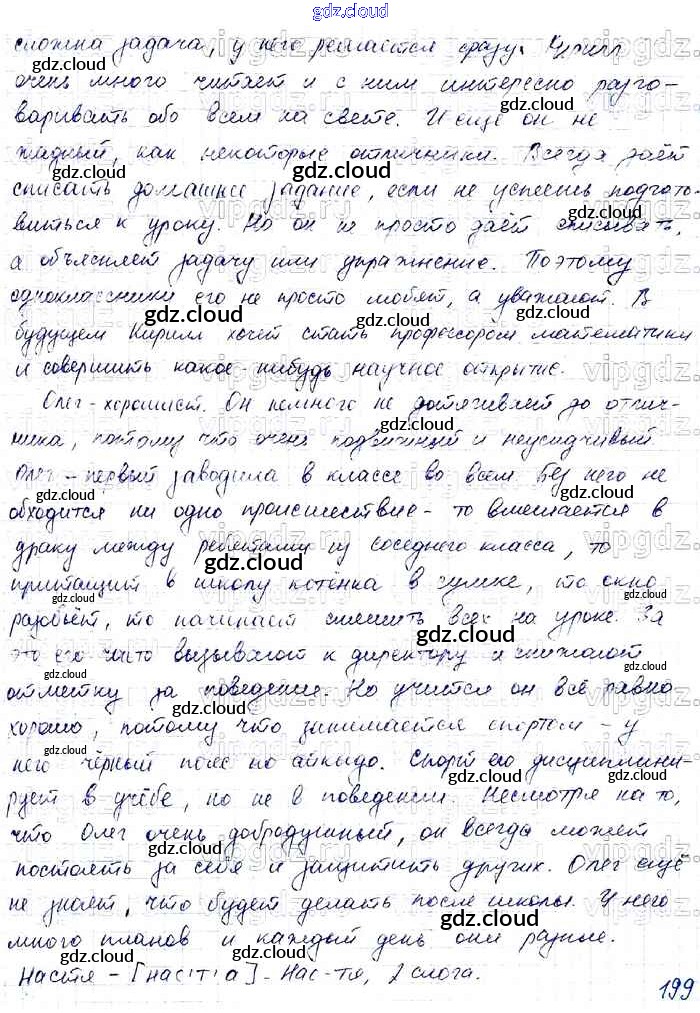 gdz.cloud
сложна задача, у него решается сразу. Кирилл
очень много читает и с ним интересно разго-
варивать обо всем на свете. И ещё он не
жадный, как некоторые отличники. Всегда даёт
списать домашнее задание, если не успеешь подгото-
виться к уроку. Но он не просто даёт списывать,
а объясняет задачу или упражнение. Поэтому
одноклассники его не просто любят, а уважают. В
будущем Кирилл хочет стать профессором математики
и совершить какое-нибудь научное открытие.
Олег - хорошист. Он немного не дотягивает до отлич-
ника, потому что очень подвижный и неусидчивый
Олег - первый заводила в классе во всем. Без него не
обходится ни одно происшествие - то вмешается в
драку между ребятами из соседнего класса, то
притащит в школу котёнка в сумке, то окно
разобьёт, то начинает смешить всех на уроке. За
это его часто вызывают к директору и снижают
отметку за поведение. Но учится он всё равно
хорошо, потому что занимается спортом - у
него чёрный пояс по айкидо. Спорт его дисциплини-
рует в учёбе, но не в поведении. Несмотря на то,
что Олег очень добродушный, он всегда может
постоять за себя и защитить других. Олег ещё
не знает, что будет делать после школы. У него
много планов и каждый день они разные.
Настя - [нас'т'а] - Нас-тя, 2 слога.
199